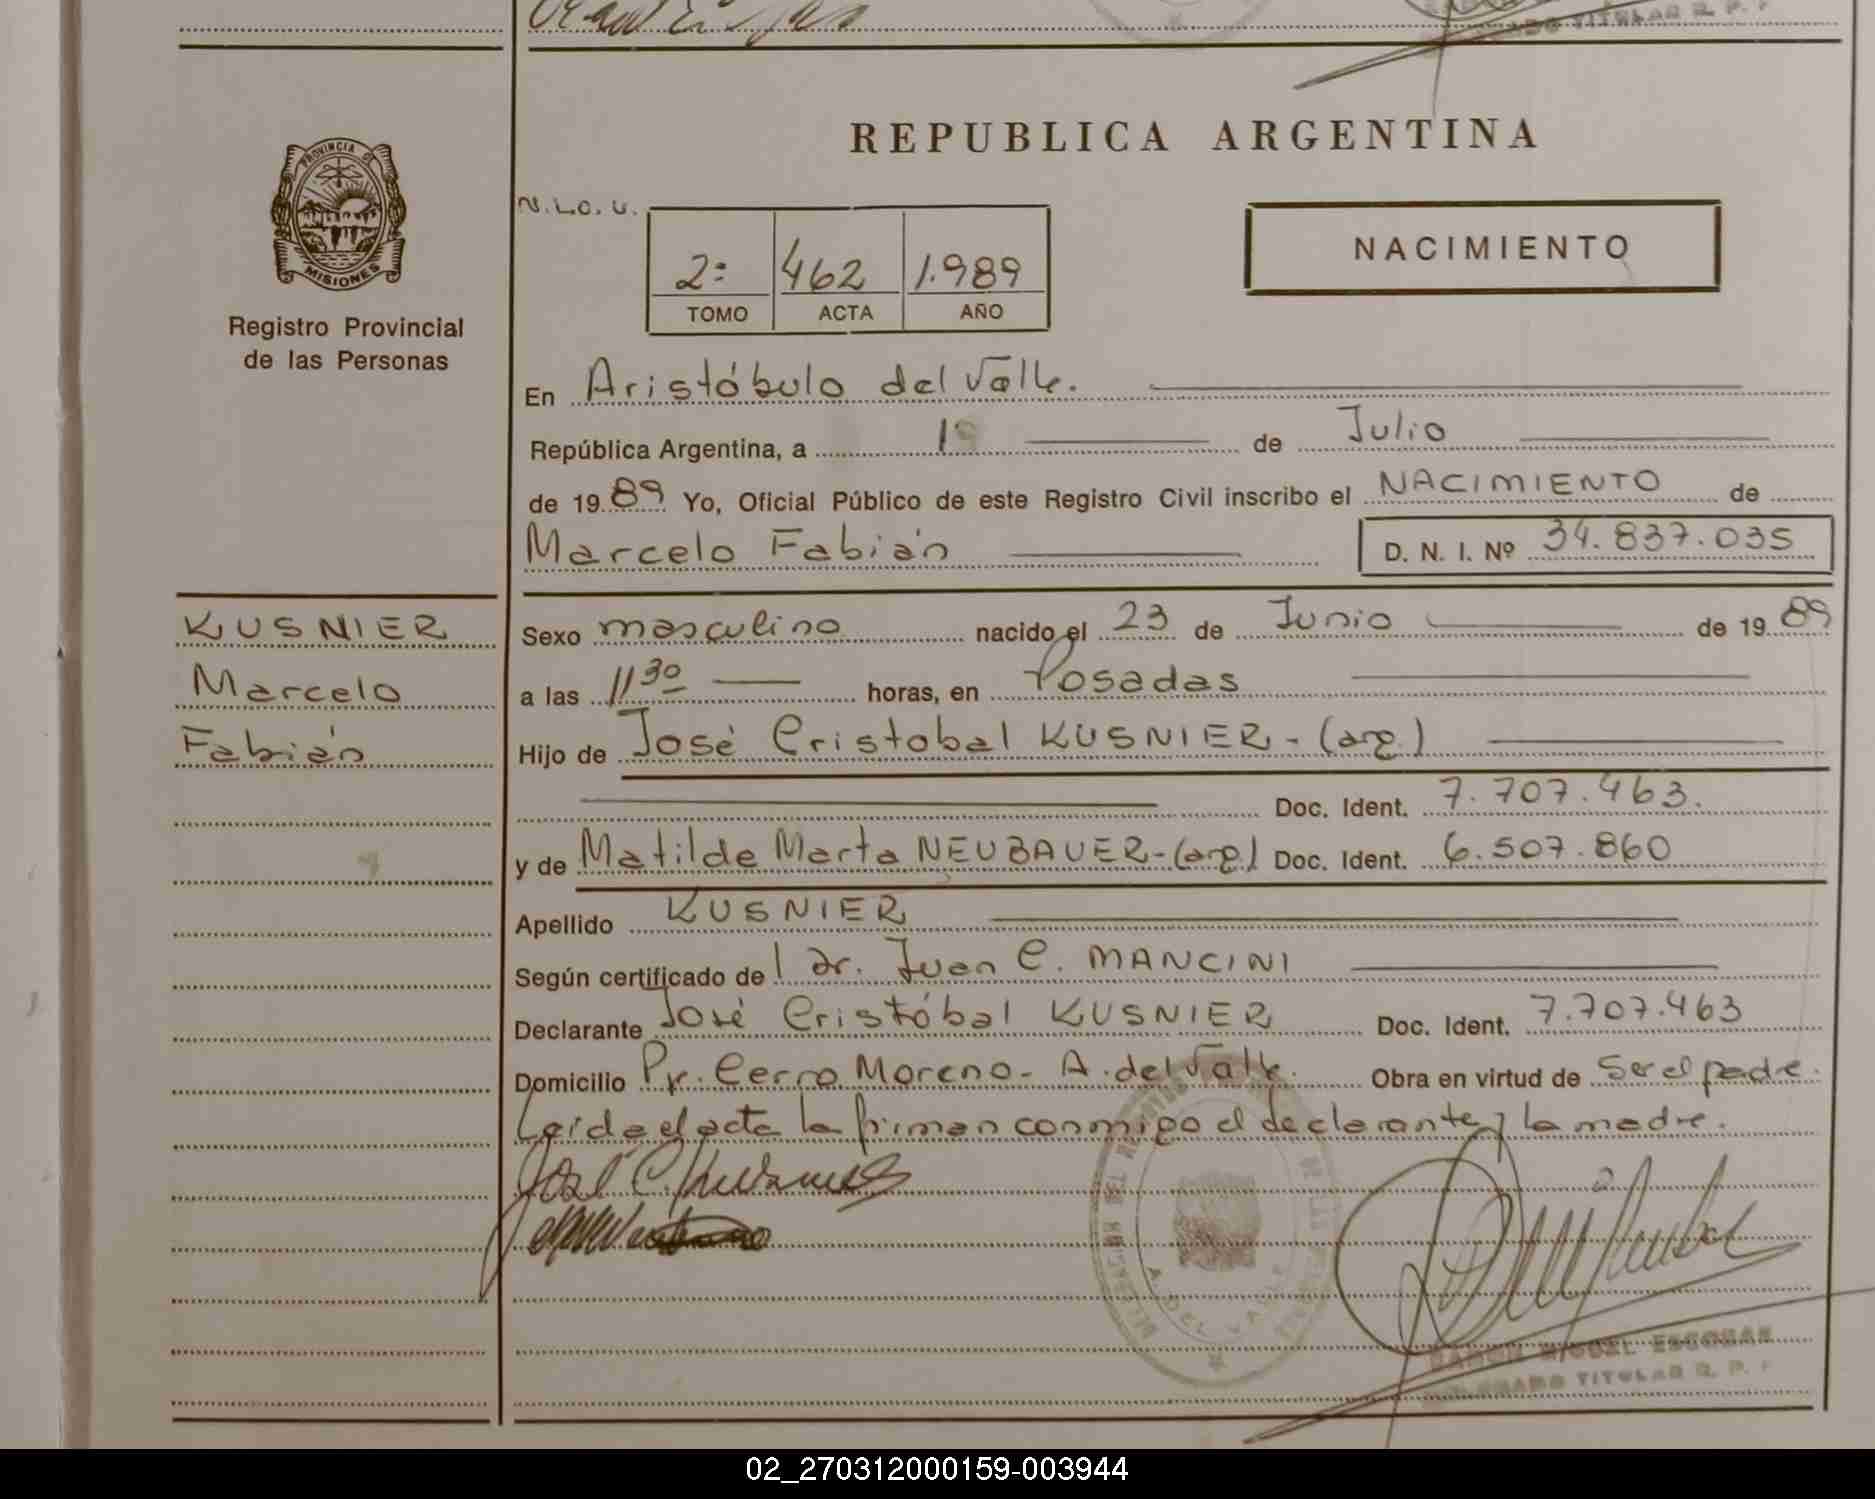 TITULAR R. P.
REPUBLICA ARGENTINA
PROVINCIA DE
MISIONES
Registro Provincial
de las Personas
N.L.O.U.
2º 462 1.989
TOMO ACTA AÑO
NACIMIENTO
En Aristóbulo del Valle.
República Argentina, a de Julio
de 19 89 Yo, Oficial Público de este Registro Civil inscribo el NACIMIENTO de
Marcelo Fabián D. N. I. Nº 34.837.035
KUSNIER
Marcelo
Fabián
Sexo masculino nacido el 23 de Junio de 19 89
a las 11 30 horas, en Posadas
Hijo de José Cristobal KUSNIER - (arg.)
Doc. Ident. 7.707.463.
y de Matilde Marta NEUBAUER - (arg.) Doc. Ident. 6.507.860
Apellido KUSNIER
Según certificado del dr. Juan C. MANCINI
Declarante José Cristóbal KUSNIER Doc. Ident. 7.707.463
Domicilio Pr. Cerro Moreno - A. del Valle. Obra en virtud de Ser el padre.
Leída el acta la firman conmigo el declarante y la madre.
José C.
A. DEL VALLE
RAMON MIGUEL ESCOBAR
DELEGADO TITULAR R. P.
02_270312000159-003944